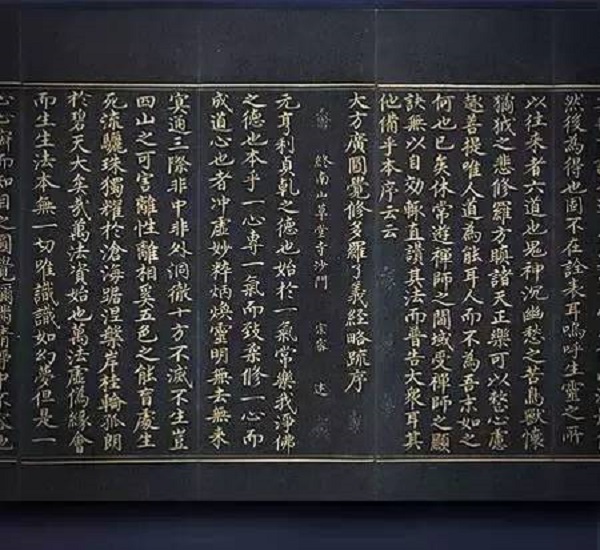 然後為得也固不在詮表耳嗚呼生靈之所
以往來者六道也鬼神沉幽愁之苦鳥獸懷
獝狘之悲修羅方瞋諸天正樂可以整心慮
趣菩提唯人道為能耳人而不為吾末如之
何也已矣休常遊禪師之閫域受禪師之顯
訣無以自効輒直讚其法而普告大衆耳其
他備乎本序云云
大方廣圓覺修多羅了義經略疏序
終南山草堂寺沙門 宗密 述
元亨利貞乾之德也始於一氣常樂我淨佛
之德也本乎一心專一氣而致柔修一心而
成道心也者冲虛妙粹炳煥靈明無去無來
冥通三際非中非外洞徹十方不滅不生豈
四山之可害離性離相奚五色之能盲處生
死流驪珠獨耀於滄海踞涅槃岸桂輪孤朗
於碧天大矣哉萬法資始也萬法虛偽緣會
而生生法本無一切唯識識如幻夢但是一
心心寂而知目之圓覺彌滿清淨中不容他